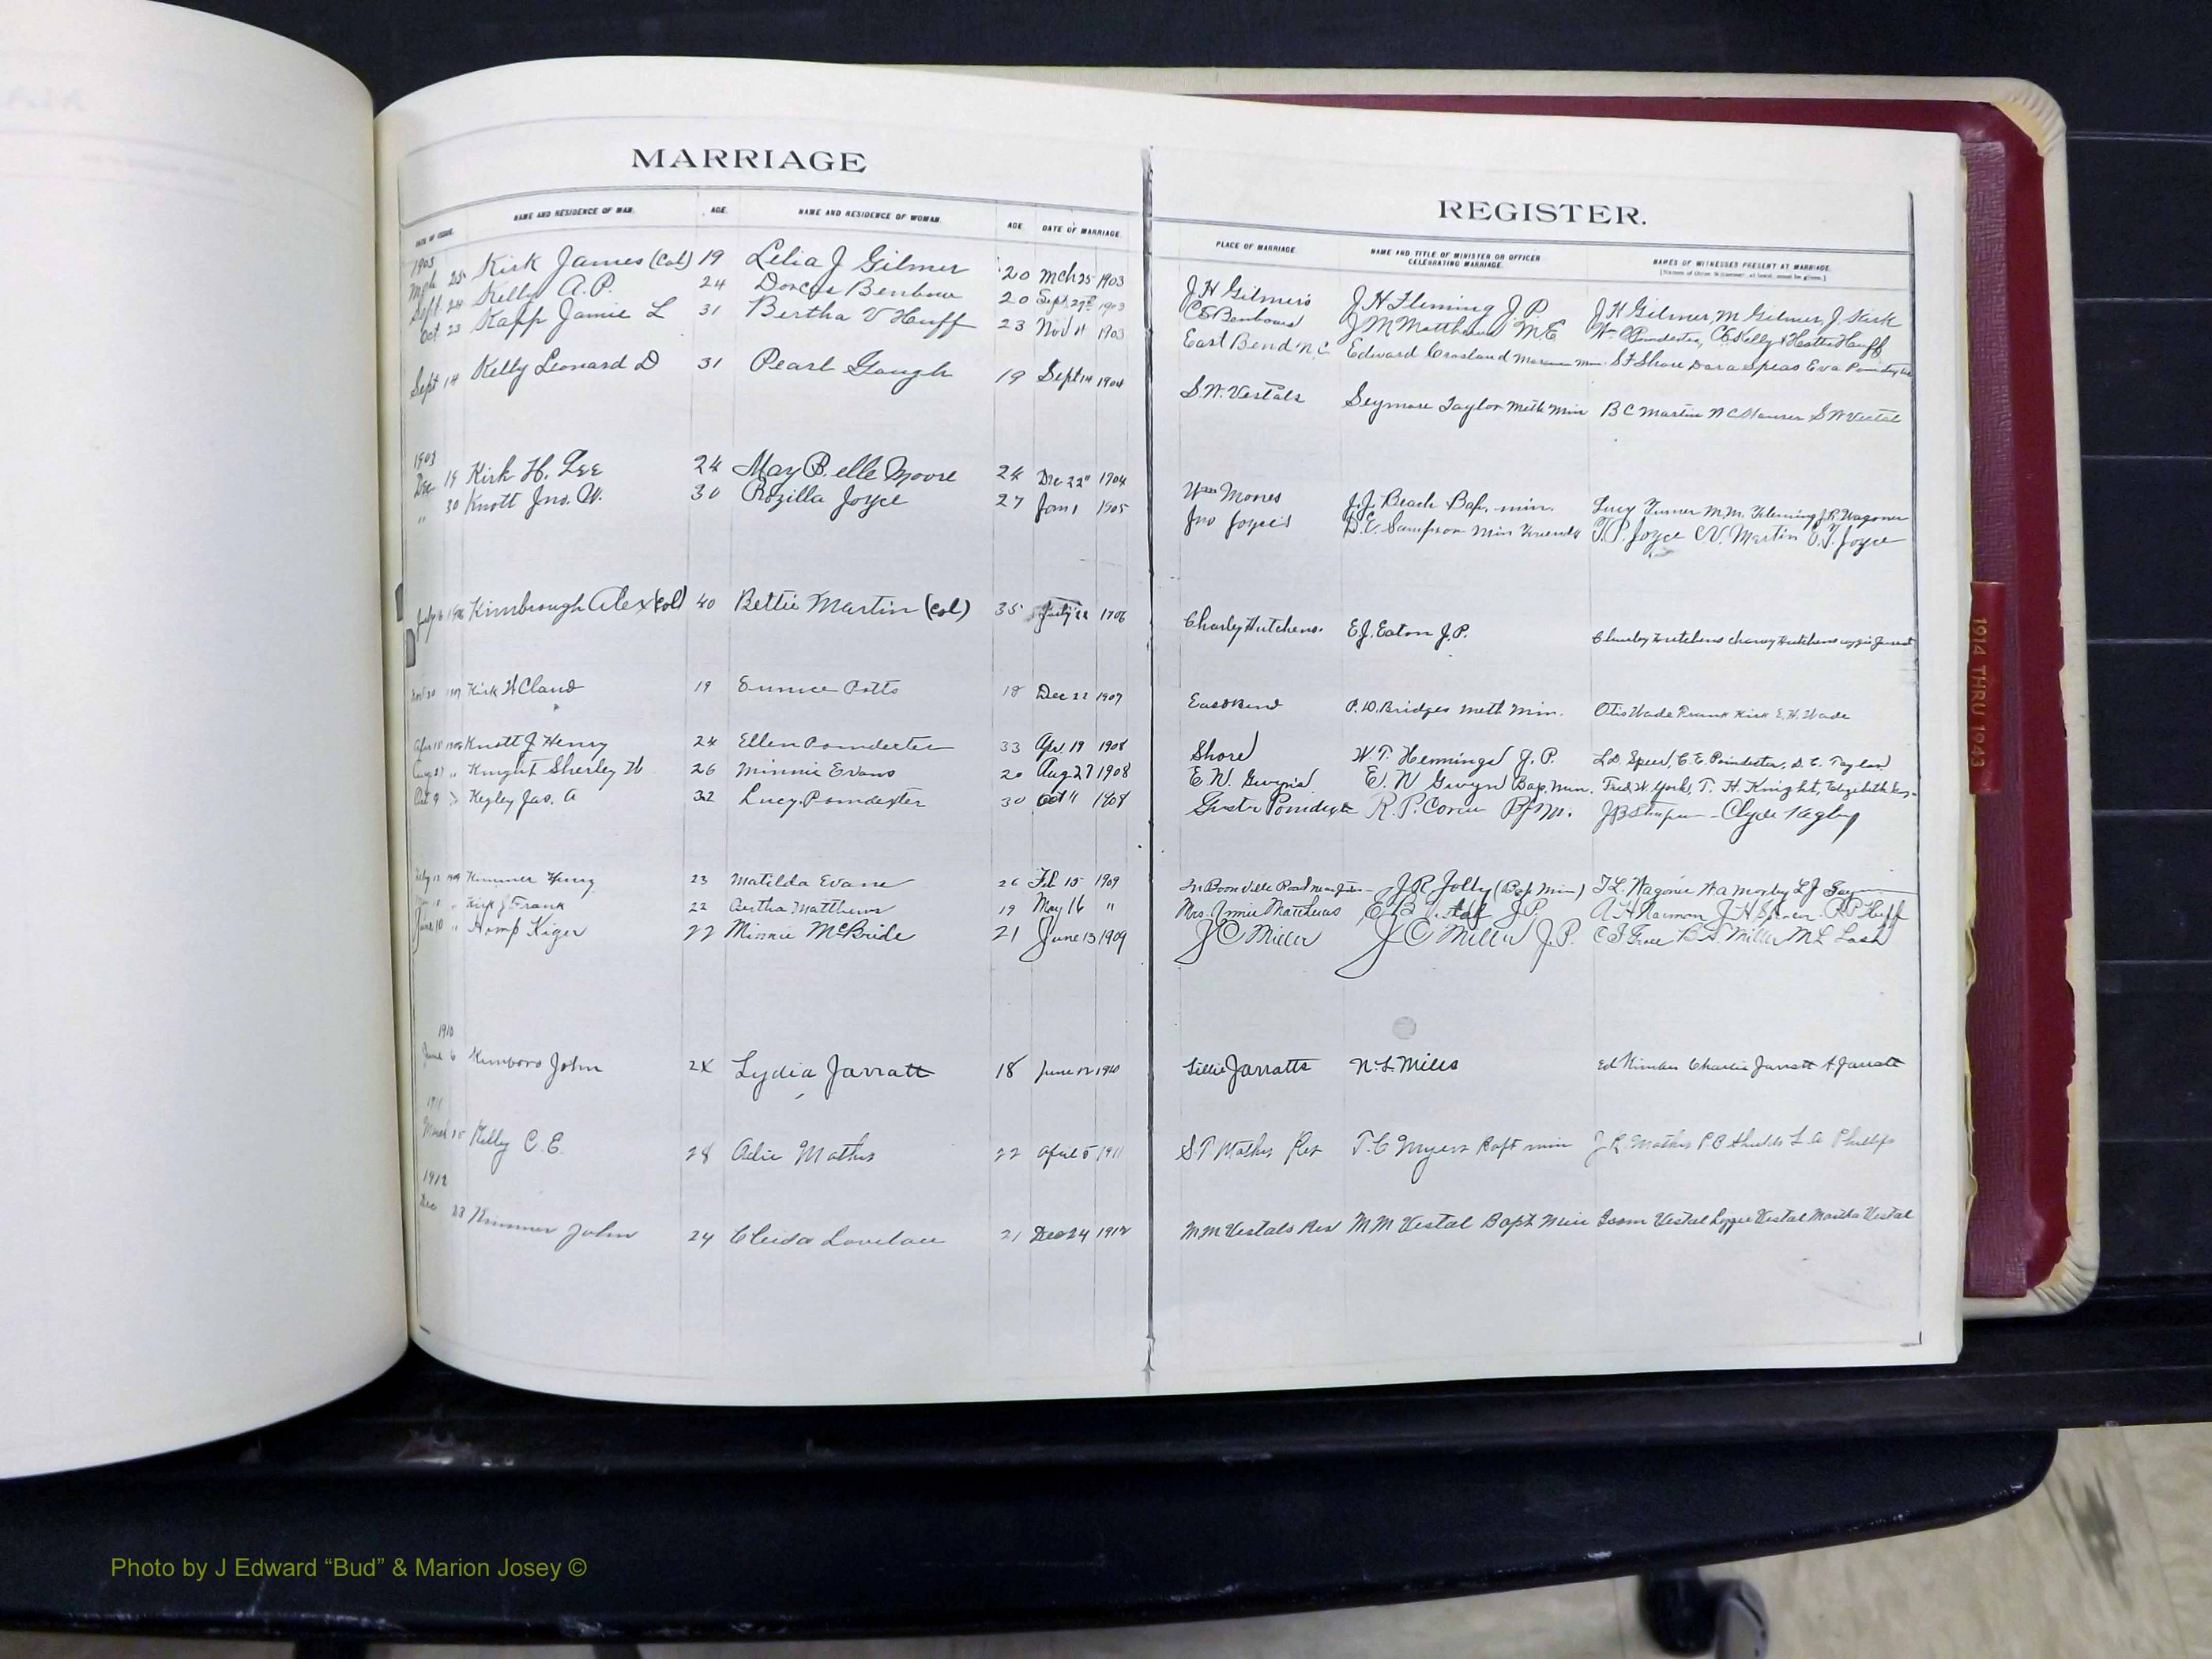 MARRIAGE
REGISTER.
DATE OF ISSUE. NAME AND RESIDENCE OF MAN. AGE. NAME AND RESIDENCE OF WOMAN. AGE. DATE OF MARRIAGE. PLACE OF MARRIAGE. NAME AND TITLE OF MINISTER OR OFFICER CELEBRATING MARRIAGE. NAMES OF WITNESSES PRESENT AT MARRIAGE.
1903
Mch 25 Kirk James (Col) 19 Lelia J Gilmer 20 Mch 25 1903 J H Gilmers J H Fleming J. P. J H Gilmer, M Gilmer, J. Kirk
Sept 24 Kelly A. P. 24 Dorcas Benbow 20 Sept 27 1903 C E Benbows J M Matthews M E Wm Poindexter, C E Kelly & Hattie Hauff
Oct 23 Kapp Jamie L 31 Bertha V Hauff 23 Nov 11 1903 East Bend N C Edward Crosland S F Shore Dora Speas Eva Poindexter
Sept 14 Kelly Leonard D 31 Pearl Gough 19 Sept 14 1904 S. W. Vestals Seymore Taylor Meth Min B C Martin S W Vestal
1903
Dec 19 Kirk H. Lee 24 May Belle Moore 24 Dec 22" 1904 Wm Mores J. J. Beach Bap. min. Lucy Turner M. M. Fleming J. R. Wagoner
" 30 Knott Jno. W. 30 Rozilla Joyce 27 Jan 1 1905 Jno Joyce's D. E. Sampson Min Friends T. P. Joyce C V. Martin O. F. Joyce
July 16 1906 Kimbrough Alex (col) 40 Bettie Martin (col) 35 July 22 1906 Charley Hutchens. E. J. Eaton J. P. Charley Hutchens
1907 Kirk W Claud 19 Eunice Potts 18 Dec 22 1907 East Bend P. D. Bridges Meth Min. Otis Wade Frank Kirk E. H. Wade
Apr 18 1908 Knott J Henry 24 Ellen Poindexter 33 Apr. 19 1908 Shore W. T. Hennings J. P. L D. Speer, C. E. Poindexter, D. C. Taylor
Aug 27 " Knight Sherley W 26 Minnie Evans 20 Aug 27 1908 E. W. Gwyn's E. W Gwyn Bap. Min. Fred W. York, T. H. Knight, Elizabeth
Oct 9 " Kegley Jas. A 32 Lucy Poindexter 30 Oct 11 1908 Poindexter R. P. Corum Clyde Kegley
1909 Kimmer 23 Matilda Evans 26 Feb 15 1909 J R Jolly (Bap Min) T. L. Wagoner
" Kirk J Frank 22 Bertha Matthews 19 May 16 " Mrs. Annie Matthews J. P. A H Harmon R P Huff
June 10 " Homp Kiger 22 Minnie McBride 21 June 13 1909 J C Miller J C Miller J. P. B. S. Miller M L Lash
1910
June 6 Kimboro John 24 Lydia Jarratt 18 June 12 1910 Lillie Jarratts N. L. Mills Ed Kimber Charlie Jarratt A Jarratt
1911
March 25 Kelly C. E. 28 Adie Mathis 22 April 5 1911 S. T. Mathis Res T. C Myers Bapt min J. R. Mathis P. C Shields L. A Phillips
1912
Dec 23 Kimmer John 24 Cleida Lovelace 21 Dec 24 1912 M M Vestals Res M M Vestal Bapt Min Vestal Lizzie Vestal Martha Vestal
1914 THRU 1943
Photo by J Edward “Bud” & Marion Josey ©